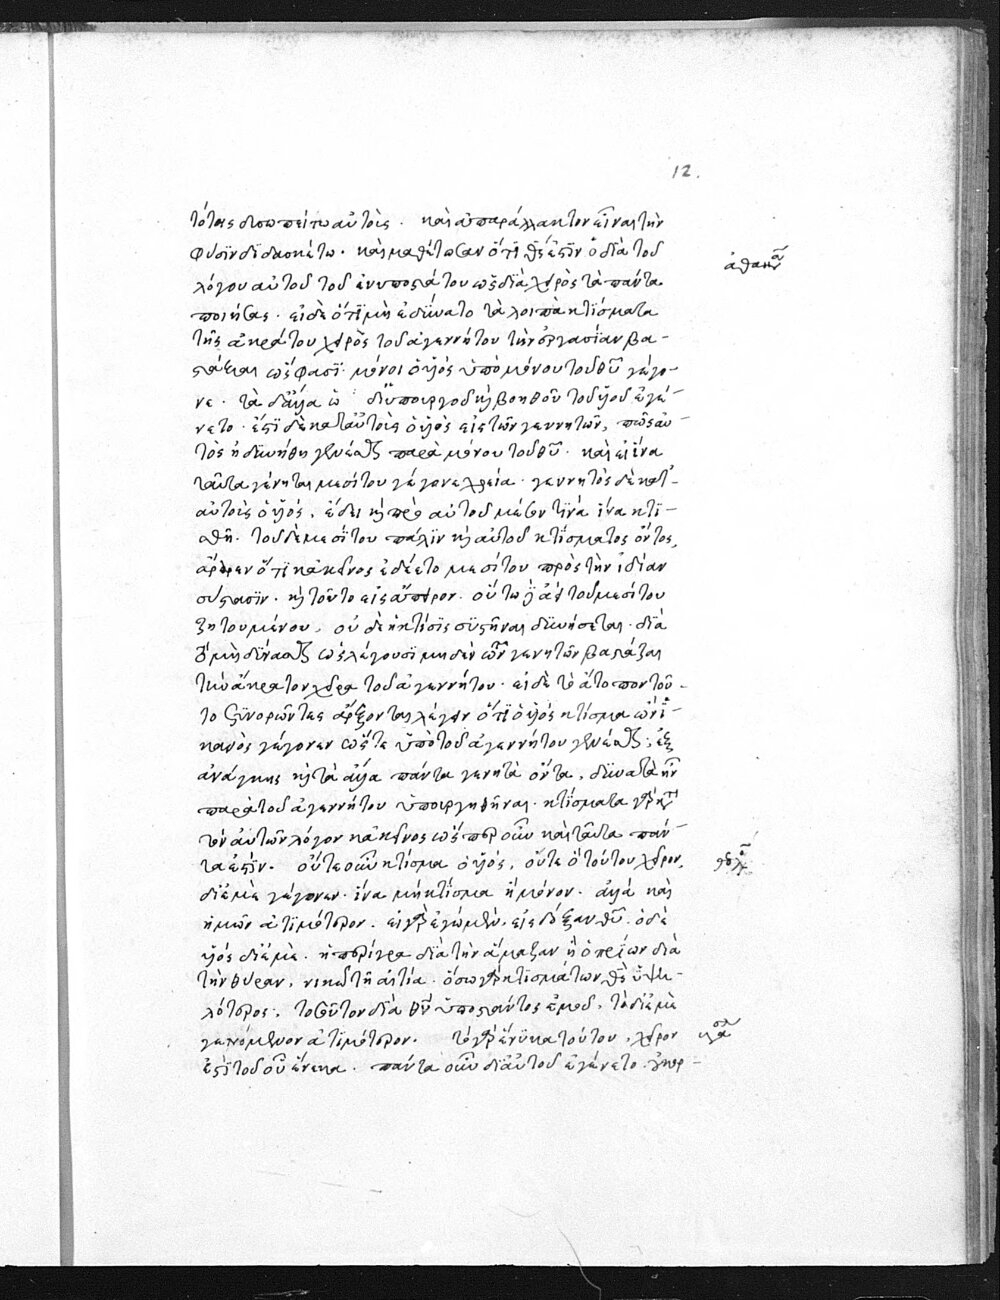 12.
τότης δυσωπείτω αὐτοὺς. καὶ ἀπαράλλακτον εἶναι τὴν
φύσιν διδασκέτω. καὶ μαθέτωσαν ὅτι θς ἐστιν ὁ διὰ τοῦ
ἀθανα
λόγου αὐτοῦ τοῦ ἐνυποστάτου ὡς διὰ χειρὸς τὰ πάντα
ποιήσας. εἰ δὲ ὅτι μὴ ἐδύνατο τὰ λοιπὰ κτίσματα
τῆς ἀκράτου χειρὸς τοῦ ἀγεννήτου τὴν ἐργασίαν βα-
στάξαι ὥς φασι. μόνον ὁ υἱὸς ὑπὸ μόνου τοῦ θῦ γέγο-
νε. τὰ δ' ἄλλα ὡς δι' ὑπουργοῦ καὶ βοηθοῦ τοῦ υἱοῦ ἐγέ-
νετο. ἔστι δὲ κατ' αὐτοὺς ὁ υἱὸς εἷς τῶν γεννητῶν, πῶς αὐ-
τὸς ἠδυνήθη γενέσθαι παρὰ μόνου τοῦ θῦ. καὶ εἰ ἵνα
ταῦτα γένηται μεσίτου γέγονε χρεία. γεννητὸς δὲ κατ'
αὐτοὺς ὁ υἱὸς, ἔδει καὶ πρὸ αὐτοῦ μέσον τινὰ ἵνα κτι-
σθῆ. τοῦ δὲ μεσίτου πάλιν καὶ αὐτοῦ κτίσματος ὄντος,
ὅτι κἀκεῖνος ἐδέετο μεσίτου πρὸς τὴν ἰδίαν
σύστασιν. καὶ τοῦτο εἰς ἄπειρον. οὕτω γὰρ ἀεὶ τοῦ μεσίτου
ζητουμένου, οὐδὲ ἡ κτίσις συστῆναι δυνήσεται. διὰ
τὸ μὴ δύνασθαι ὡς λέγουσι μηδὲν τῶν γενητῶν βαστάξαι
τὴν ἄκρατον χεῖρα τοῦ ἀγεννήτου. εἰ δὲ τὸ ἄτοπον τού-
το συνορῶντες ἄρξονται λέγειν ὅτι ὁ υἱὸς κτίσμα ὢν ἱ-
κανὸς γέγονεν ὥστε ὑπὸ τοῦ ἀγεννήτου γενέσθαι, ἐξ
ἀνάγκης καὶ τὰ ἄλλα πάντα γενητὰ ὄντα, δυνατὰ ἦν
παρὰ τοῦ ἀγεννήτου ὑπουργηθῆναι. κτίσματα γὰρ κατὰ
τὸν αὐτῶν λόγον κἀκεῖνος ὥσπερ οὖν καὶ ταῦτα πάν-
τα ἐστίν. οὔτε οὖν κτίσμα ὁ υἱός, οὔτε ὁ τούτου χεῖρον,
δι' ἐμὲ γέγονεν. ἵνα μὴ κτίσμα ἦ μόνον. ἀλλὰ καὶ
ἡμῶν ἀτιμότερον. εἰ γὰρ ἐγὼ μὲν, εἰς δόξαν θῦ. ὁ δὲ
υἱὸς δι' ἐμὲ. ἡ πυράγρα διὰ τὴν ἅμαξαν ἢ ὁ πρίων διὰ
τὴν θύραν, νικῶ τῆ αἰτία. ὅσω γὰρ κτισμάτων θς ὑψη-
λότερος, τοσοῦτον διὰ θν ὑποστάντος ἐμοῦ, τὸ δι' ἐμὲ
γενόμενον ἀτιμότερον. τὸ γὰρ ἕνεκα τούτου, χεῖρον
ἐστὶ τοῦ οὗ ἕνεκα. πάντα οὖν δι' αὐτοῦ ἐγένετο.